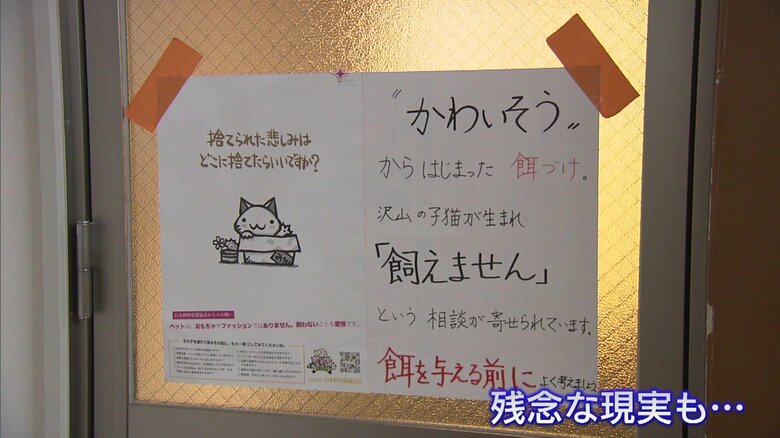 捨てられた悲しみは
どこに捨てたらいいですか?
日本動物愛護協会からのお願い
ペットは、おもちゃやファッションではありません。飼わないことも愛情です。
"かわいそう"
からはじまった 餌づけ。
沢山の子猫が生まれ
「飼えません」
という 相談が寄せられています。
餌を与える前に よく考えましょう
残念な現実も…